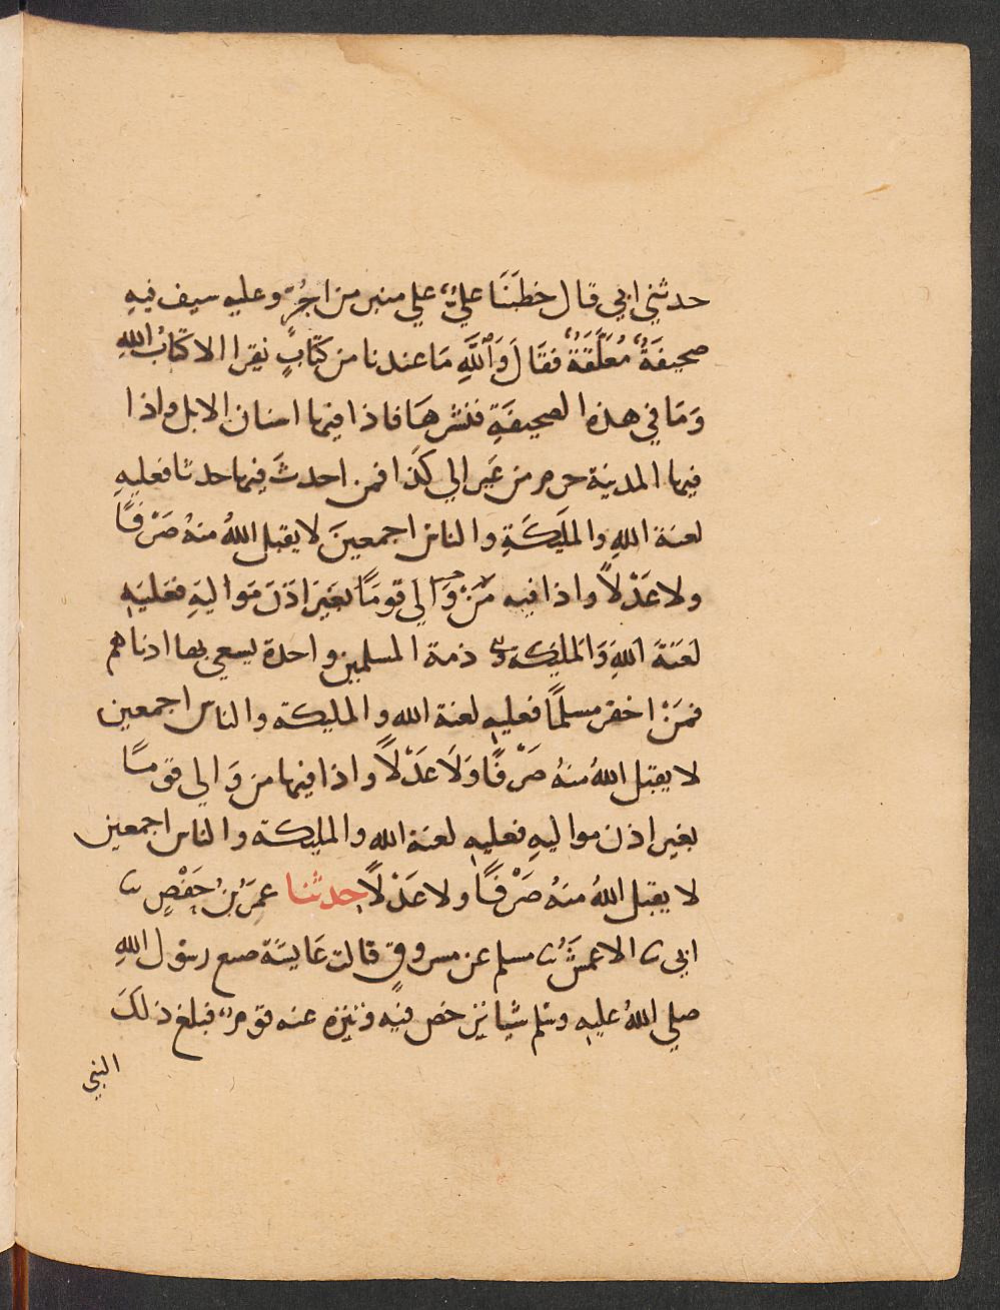 حدثني ابي قال خطَبَنَا عليٌّ علي منبر من اجُرٍّ وعليه سيف فيهِ
صحيفَةٌ مُعَلَّقَةٌ فقَالَ وَاللَّهِ مَا عندنا من كتَابٍ نقرا الا كتَابُ اللهِ
وَمَا في هذه الصحيفَةِ فنشرهَا فاذا فيها اسنان الابل واذا
فيها المدينة حرم من عَير الي كذَا فمن احدثَ فيها حدثا فعليهِ
لعنة اللهِ والملَيكَةِ والناس اجمعينَ لا يقبل اللهُ منهُ صَرْفًا
ولا عَدْلًا واذا فيه مَنْ وَالي قومًا بغَير اذنَ مَواليَهِ فعَليَهِ
لعَنَة اللهِ وَالمَليكة ذمة المسلمين واحدة يسعي بها ادناهم
فمَنْ اخفر مسلمًا فعليهِ لعنة الله والمليكة والناس اجمعين
لا يقبل اللهُ منهُ صَرْفًا وَلَا عَدْلًا واذا فيها من وَالي قومًا
بغير اذن مواليهِ فعليهِ لعنة الله والمليكة والناس اجمعين
لا يقبل اللهُ منهُ صَرْفًا ولا عَدْلًا حدثنا عمَرُ بنُ حَفْصٍ ثنا
ابي ثنا الاعمَشُ ثنا مسلم عن مسروقٍ قالت عَايشَة صنع رسول اللهِ
صلي اللهُ عليهِ وسَلم شيا ترخص فيه وتنزه عنه قومٌ فبلغ ذلكَ
النبي